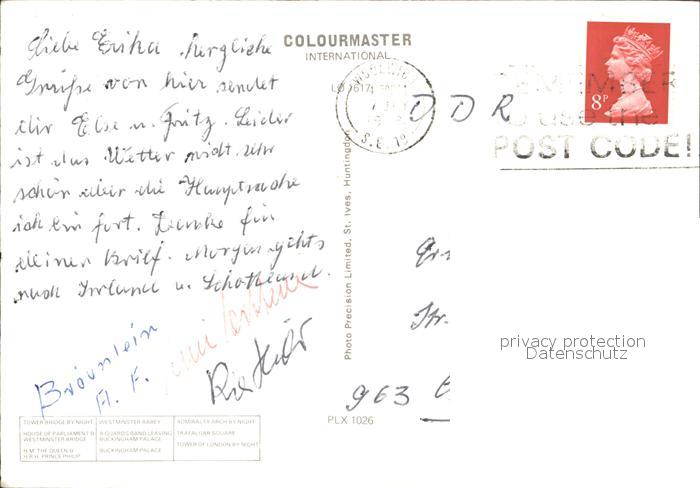 Liebe Erika, herzliche
Grüße von hier sendet
dir Else u. Fritz. Leider
ist das Wetter nicht sehr
schön aber die Hauptsache
ich bin fort. Danke für
deinen Brief. Morgen gehts
nach Irland u. Schottland.
Bräunlein
A. F.
COLOURMASTER
INTERNATIONAL
8P
REMEMBER
to use the
POST CODE!
S.E. 19
D D R
Str.
963
Photo Precision Limited, St. Ives, Huntingdon
PLX 1026
privacy protection
Datenschutz
TOWER BRIDGE BY NIGHT
HOUSE OF PARLIAMENT &
WESTMINSTER BRIDGE
H.M. THE QUEEN &
H.R.H. PRINCE PHILIP
WESTMINSTER ABBEY
A GUARDS BAND LEAVING
BUCKINGHAM PALACE
BUCKINGHAM PALACE
ADMIRALTY ARCH BY NIGHT
TRAFALGAR SQUARE
TOWER OF LONDON BY NIGHT